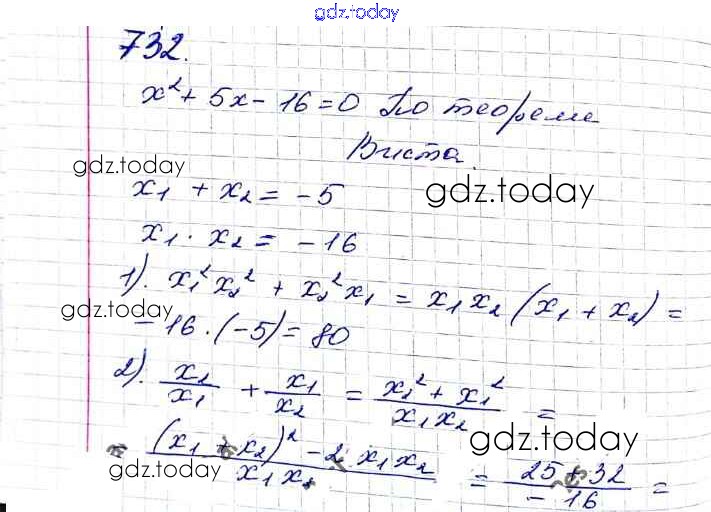 gdz.today
732.
x² + 5x - 16 = 0 По теореме
Виета.
gdz.today
x₁ + x₂ = -5
gdz.today
x₁ · x₂ = -16
1). x₁² x₂² + x₂² x₁ = x₁ x₂ (x₁ + x₂) =
gdz.today
- 16 · (-5) = 80
2). x₂/x₁ + x₁/x₂ = (x₂² + x₁²)/(x₁ x₂) =
gdz.today
= ((x₁ + x₂)² - 2 x₁ x₂)/(x₁ x₂) = (25 + 32)/(-16) =
gdz.today